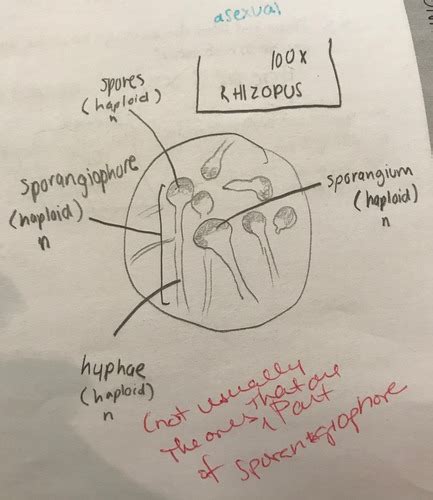 asexual
100x
RHIZOPUS
spores
(haploid)
n
sporangiophore
(haploid)
n
sporangium
(haploid)
n
hyphae
(haploid)
n
(not usually
the ones that are
part
of sporangiophore